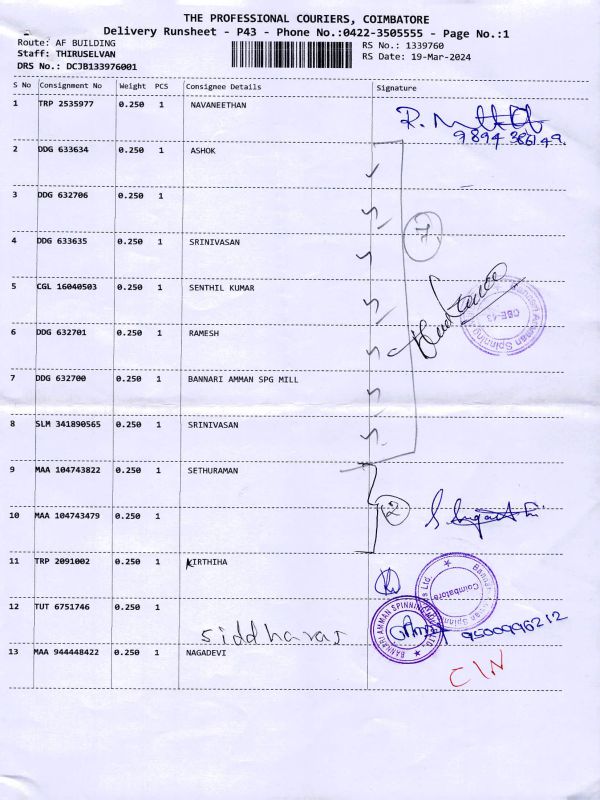 THE PROFESSIONAL COURIERS, COIMBATORE
Delivery Runsheet - P43 - Phone No.:0422-3505555 - Page No.:1
Route: AF BUILDING
Staff: THIRUSELVAN
DRS No.: DCJB133976001
RS No.: 1339760
RS Date: 19-Mar-2024
S No Consignment No Weight PCS Consignee Details Signature
1 TRP 2535977 0.250 1 NAVANEETHAN
2 DDG 633634 0.250 1 ASHOK
3 DDG 632706 0.250 1
4 DDG 633635 0.250 1 SRINIVASAN
5 CGL 16040503 0.250 1 SENTHIL KUMAR
6 DDG 632701 0.250 1 RAMESH
7 DDG 632700 0.250 1 BANNARI AMMAN SPG MILL
8 SLM 341890565 0.250 1 SRINIVASAN
9 MAA 104743822 0.250 1 SETHURAMAN
10 MAA 104743479 0.250 1
2
11 TRP 2091002 0.250 1 KIRTHIHA
Coimbatore
12 TUT 6751746 0.250 1
BANNARI AMMAN SPINNING
9500996212
13 MAA 944448422 0.250 1 NAGADEVI